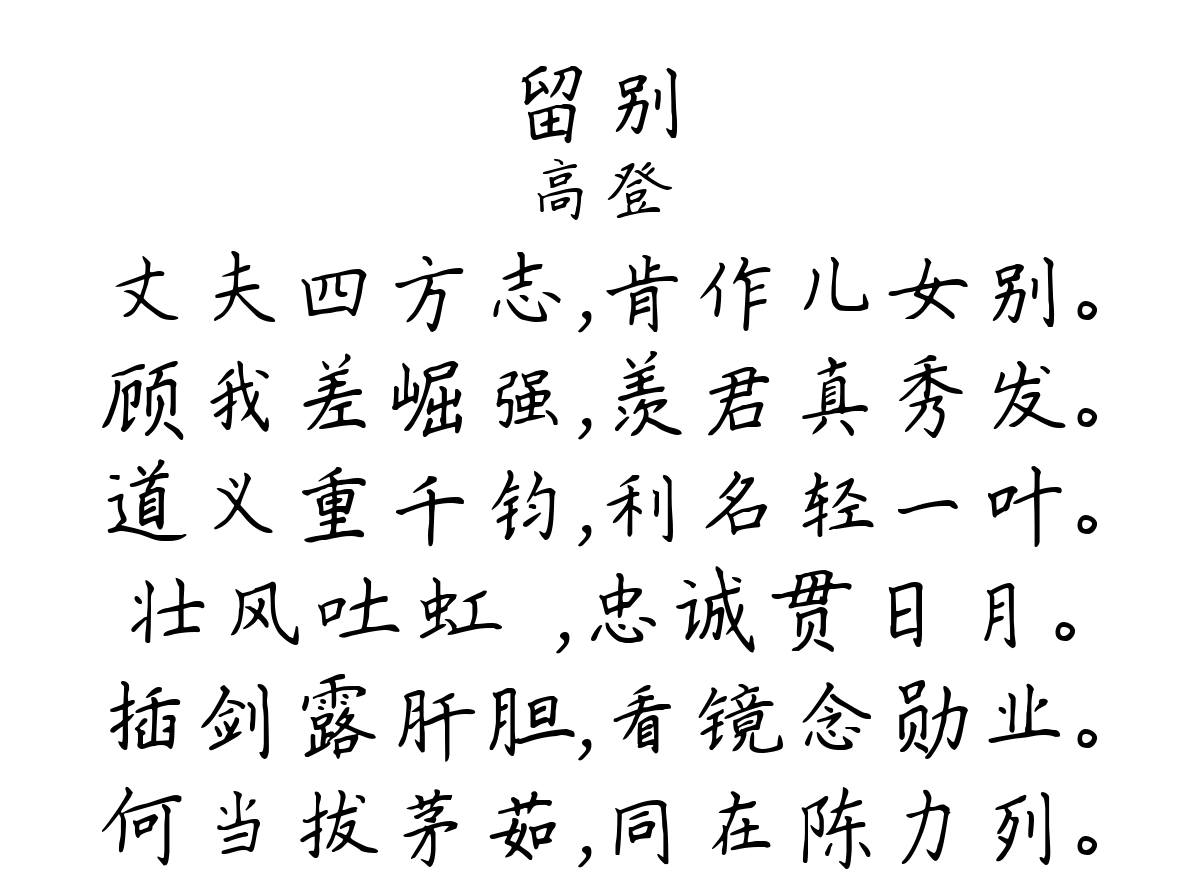 留别
高登
丈夫四方志,肯作儿女别。
顾我差崛强,羡君真秀发。
道义重千钧,利名轻一叶。
壮风吐虹 ,忠诚贯日月。
插剑露肝胆,看镜念勋业。
何当拔茅茹,同在陈力列。